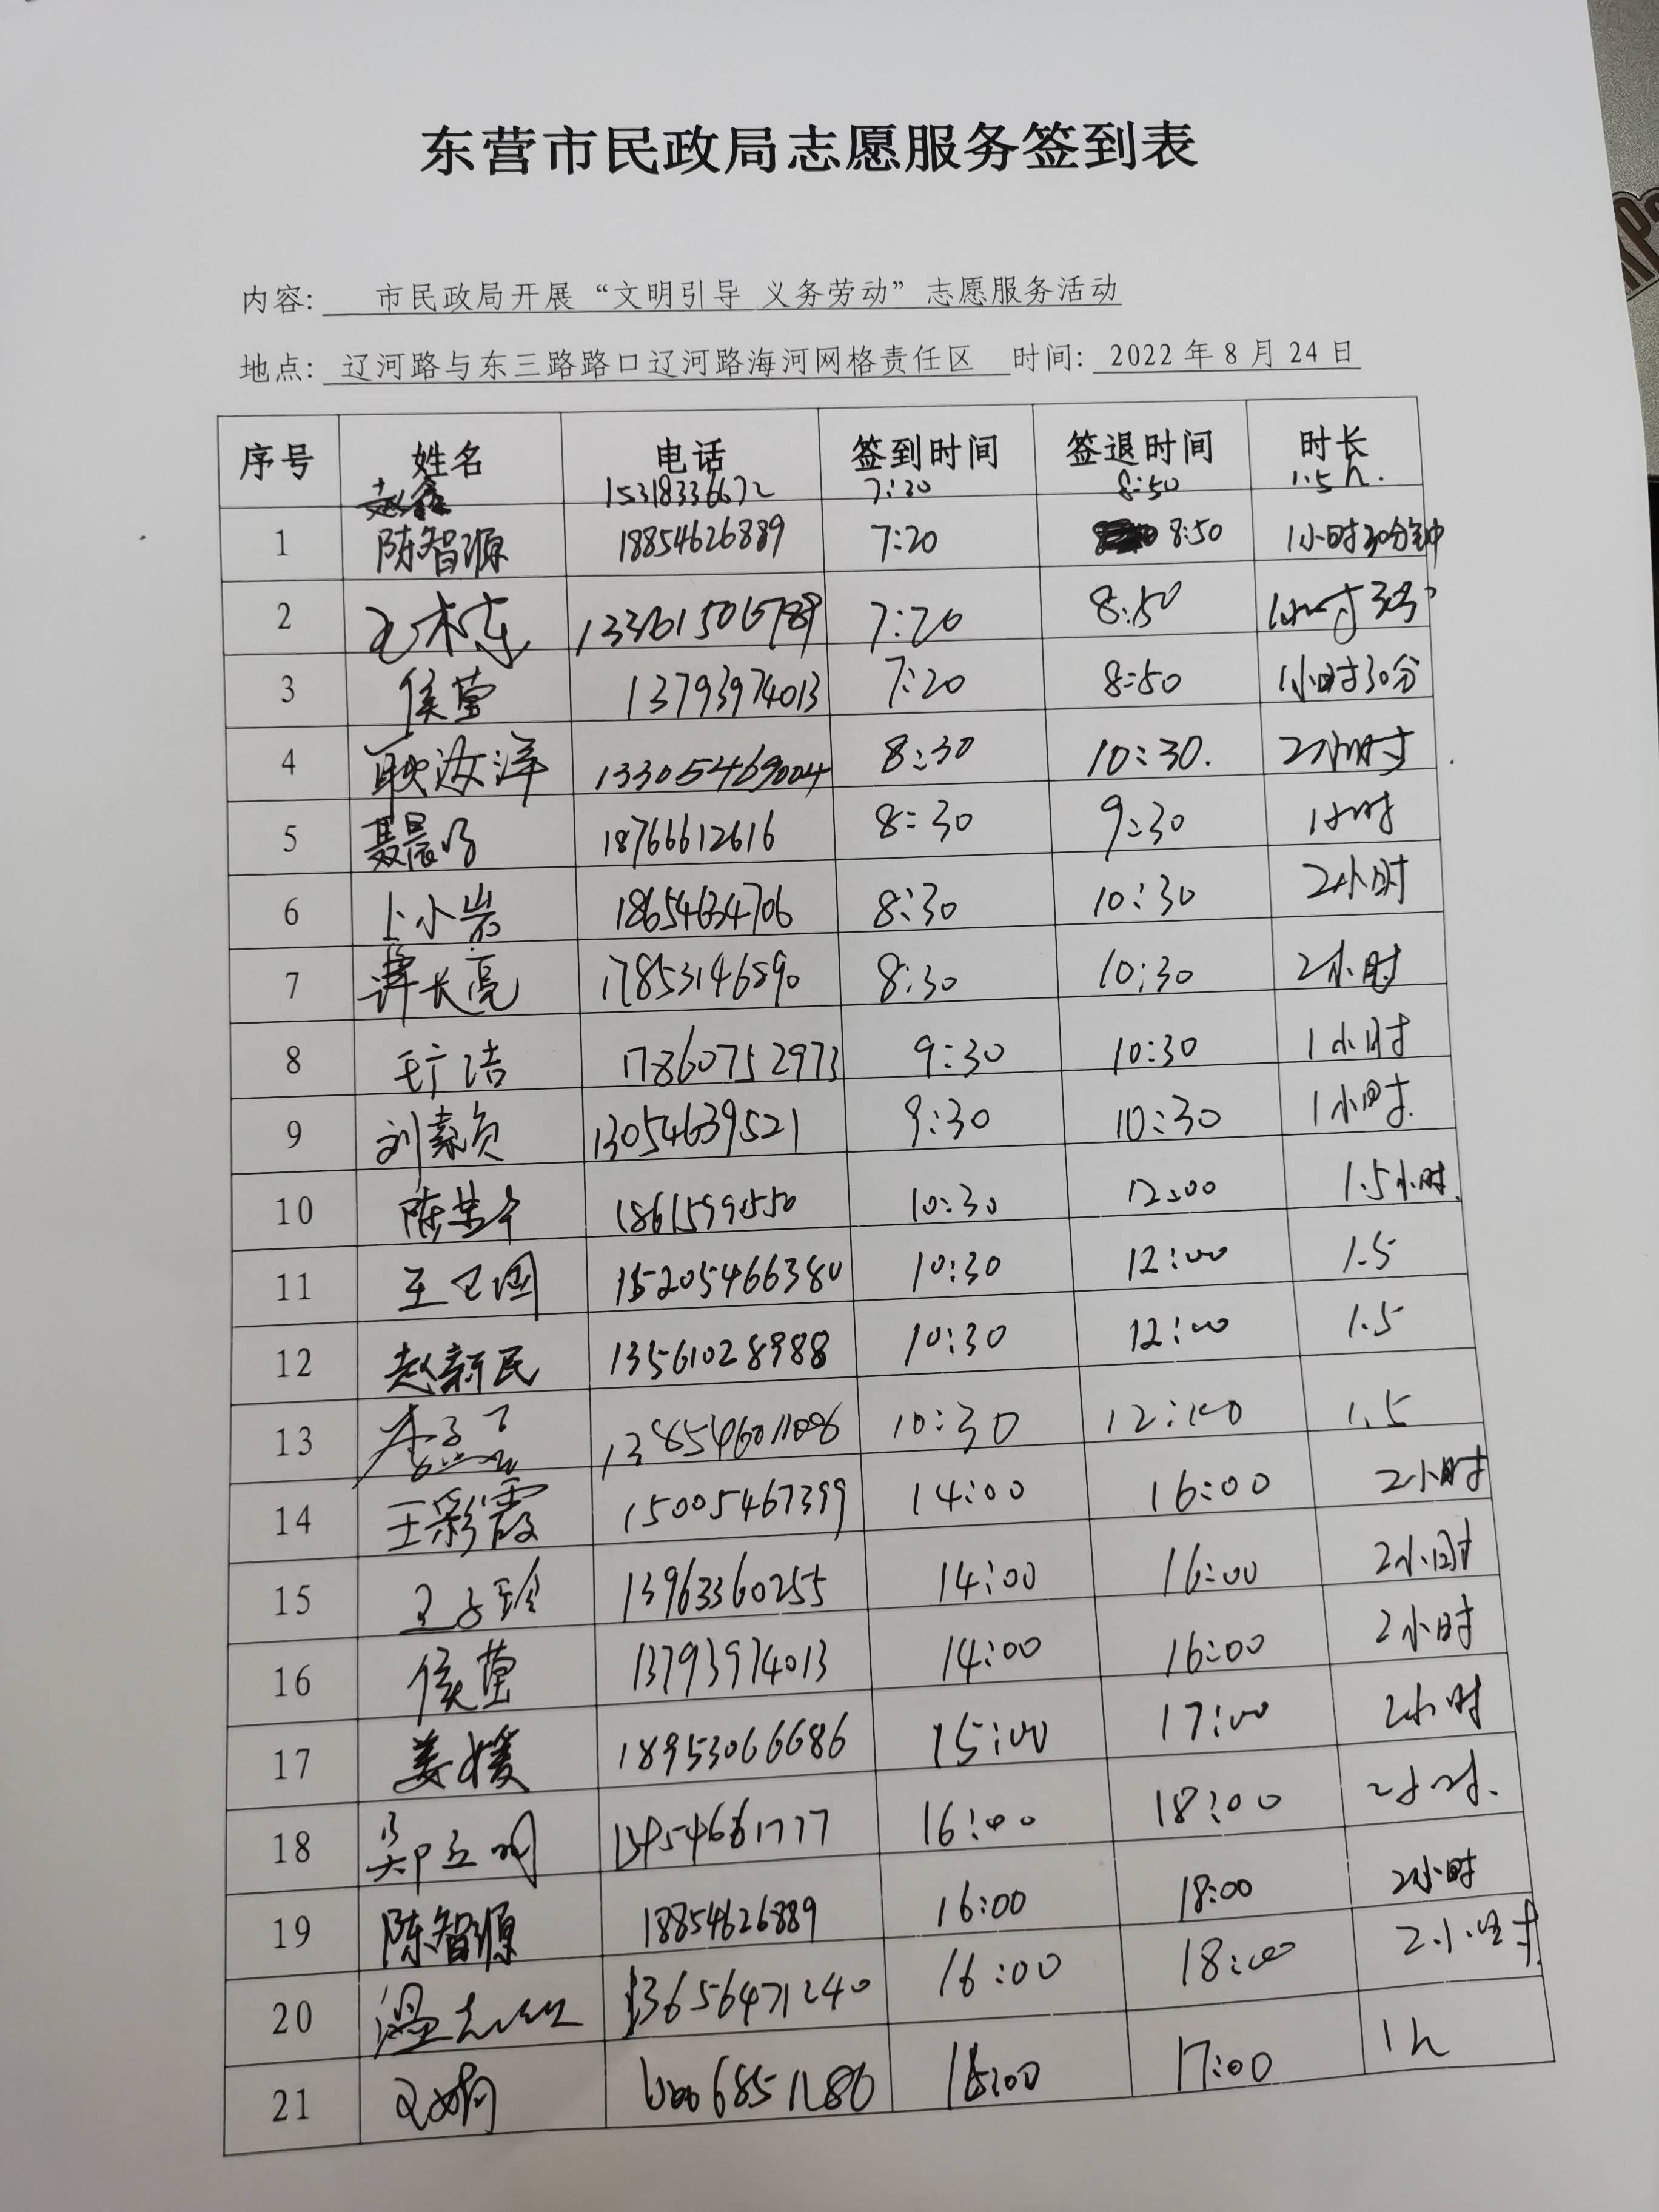 东营市民政局志愿服务签到表
内容: 市民政局开展“文明引导 义务劳动”志愿服务活动
地点: 辽河路与东三路路口辽河路海河网格责任区 时间: 2022年8月24日
序号 姓名 电话 签到时间 签退时间 时长
赵鑫 15318336672 7:20 8:50 1.5h.
1 陈智源 18854626889 7:20 8:50 1小时30分钟
2 7:20 8:50
3 侯莹 13793974013 7:20 8:50 1小时30分
4 耿汝洋 13305469004 8:30 10:30. 2小时
5 聂晨 18766612616 8:30 9:30 1小时
6 卜小岩 18654634706 8:30 10:30 2小时
7 谭长亮 17853146890 8:30 10:30 2小时
8 17860752973 9:30 10:30 1小时
9 刘素贞 13054639521 9:30 10:30 1小时.
10 10:30 12:00 1.5小时.
11 王卫国 15205466380 10:30 12:00 1.5
12 赵新民 13561028988 10:30 12:00 1.5
13 10:30 12:00 1.5
14 王彩霞 15005467399 14:00 16:00 2小时
15 13963360255 14:00 16:00 2小时
16 侯莹 13793974013 14:00 16:00 2小时
17 姜媛 18953066686 15:00 17:00 2小时
18 16:00 18:00 2小时.
19 陈智源 18854626889 16:00 18:00 2小时
20 13656471240 16:00 18:00 2小时
21 17:00 1h